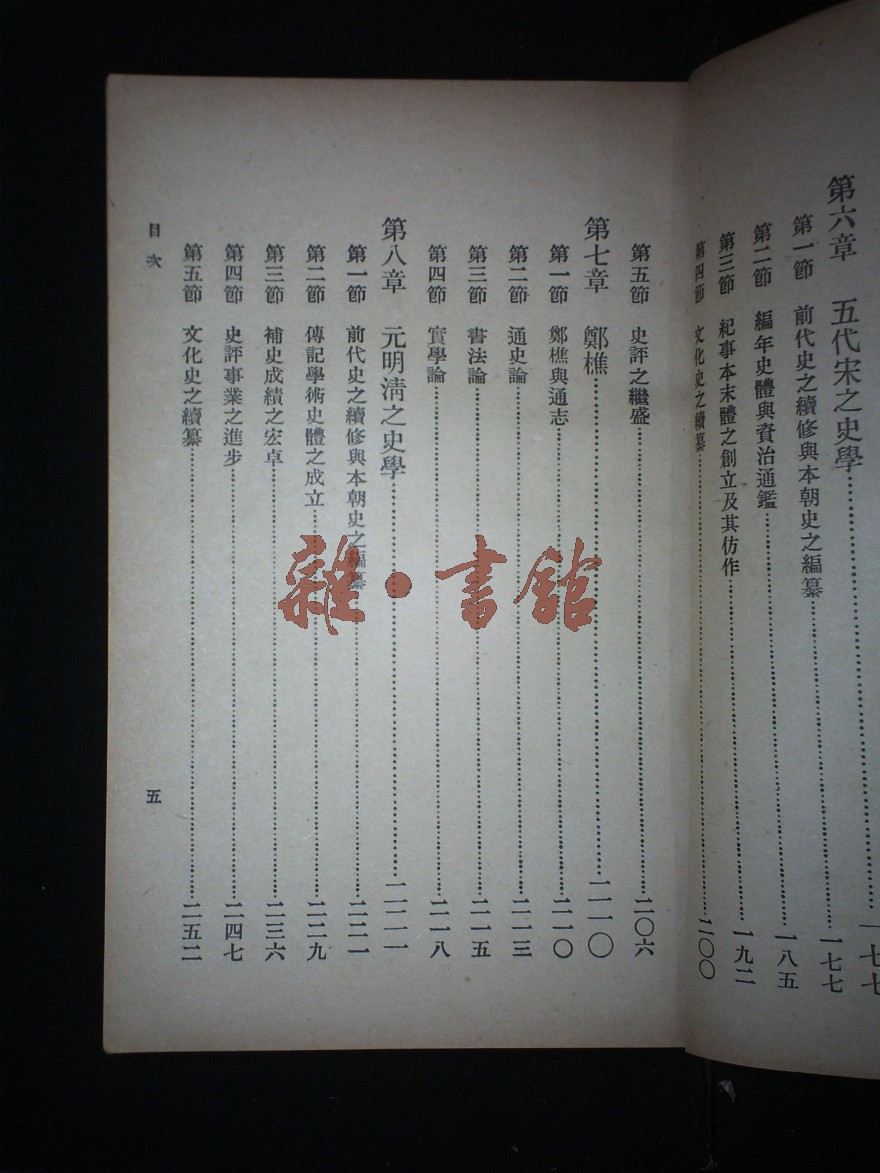 第六章 五代宋之史學 一七七
第一節 前代史之續修與本朝史之編纂 一七七
第二節 編年史體與資治通鑑 一八五
第三節 紀事本末體之創立及其仿作 一九二
第四節 文化史之續纂 二〇〇
第五節 史評之繼盛 二〇六
第七章 鄭樵 二一〇
第一節 鄭樵與通志 二一〇
第二節 通史論 二一三
第三節 書法論 二一五
第四節 實學論 二一八
第八章 元明清之史學 二二一
第一節 前代史之續修與本朝史之編纂 二二一
第二節 傳記學術史體之成立 二二九
第三節 補史成績之宏卓 二三六
第四節 史評事業之進步 二四七
第五節 文化史之續纂 二五二
目次 五
雜·書館